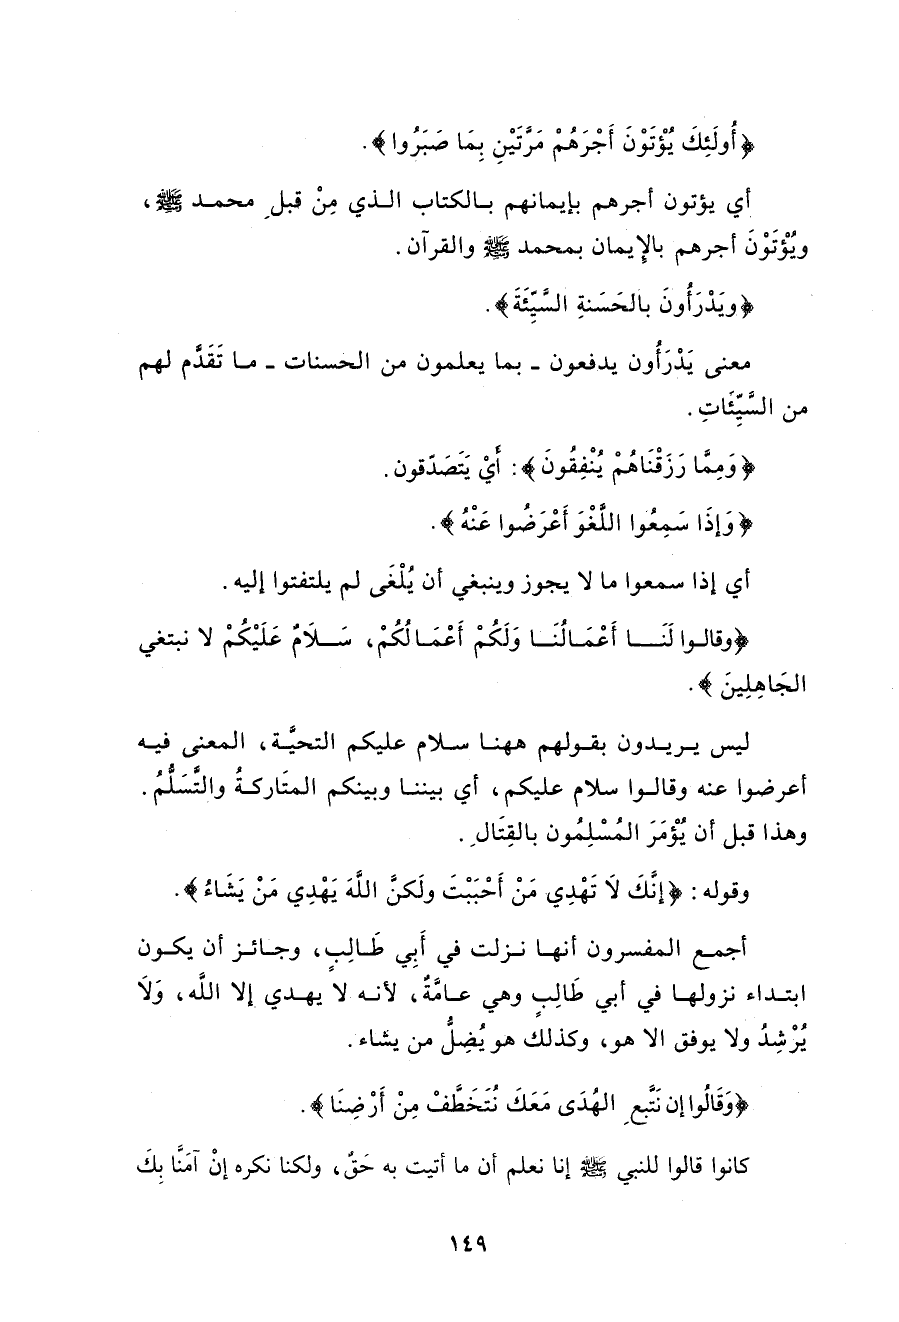 ﴿أُولَئِكَ يُؤْتَوْنَ أَجْرَهُمْ مَرَّتَيْنِ بِمَا صَبَرُوا﴾.
أي يؤتون أجرهم بإيمانهم بالكتاب الذي مِنْ قبلِ محمد ﷺ،
ويُؤْتَوْنَ أجرهم بالإيمان بمحمد ﷺ والقرآن.
﴿ويَدْرَأُونَ بالحَسَنةِ السَّيِّئَةَ﴾.
معنى يَدْرَأُون يدفعون ـ بما يعلمون من الحسنات ـ ما تَقَدَّم لهم
من السَّيِّئَاتِ.
﴿وَمِمَّا رَزَقْنَاهُمْ يُنْفِقُونَ﴾: أَيْ يَتَصَدّقون.
﴿وَإِذَا سَمِعُوا اللَّغْوَ أَعْرَضُوا عَنْهُ﴾.
أي إذا سمعوا ما لا يجوز وينبغي أن يُلْغَى لم يلتفتوا إليه.
﴿وقالوا لَنَا أَعْمَالُنَا وَلَكُمْ أَعْمَالُكُمْ، سَلَامٌ عَلَيْكُمْ لا نبتغي
الجَاهِلِينَ﴾.
ليس يريدون بقولهم ههنا سلام عليكم التحيَّة، المعنى فيه
أعرضوا عنه وقالوا سلام عليكم، أي بيننا وبينكم المتَاركةُ والتَّسَلُّمُ.
وهذا قبل أن يُؤْمَرَ المُسْلِمُون بالقِتَالِ.
وقوله: ﴿إِنَّكَ لَا تَهْدِي مَنْ أَحْبَبْتَ ولَكنَّ اللَّهَ يَهْدِي مَنْ يَشَاءُ﴾.
أجمع المفسرون أنها نزلت في أَبِي طَالِبٍ، وجائز أن يكون
ابتداء نزولها في أبي طَالِبٍ وهي عامَّةٌ، لأنه لا يهدي إلا الله، وَلَا
يُرْشِدُ ولا يوفق الا هو، وكذلك هو يُضِلُّ من يشاء.
﴿وَقَالُوا إن نَتَّبعِ الهُدَى مَعَكَ نُتَخَطَّفْ مِنْ أَرْضِنَا﴾.
كانوا قالوا للنبي ﷺ إنا نعلم أن ما أتيت به حَقٌ، ولكنا نكره إنْ آمَنَّا بِكَ
١٤٩